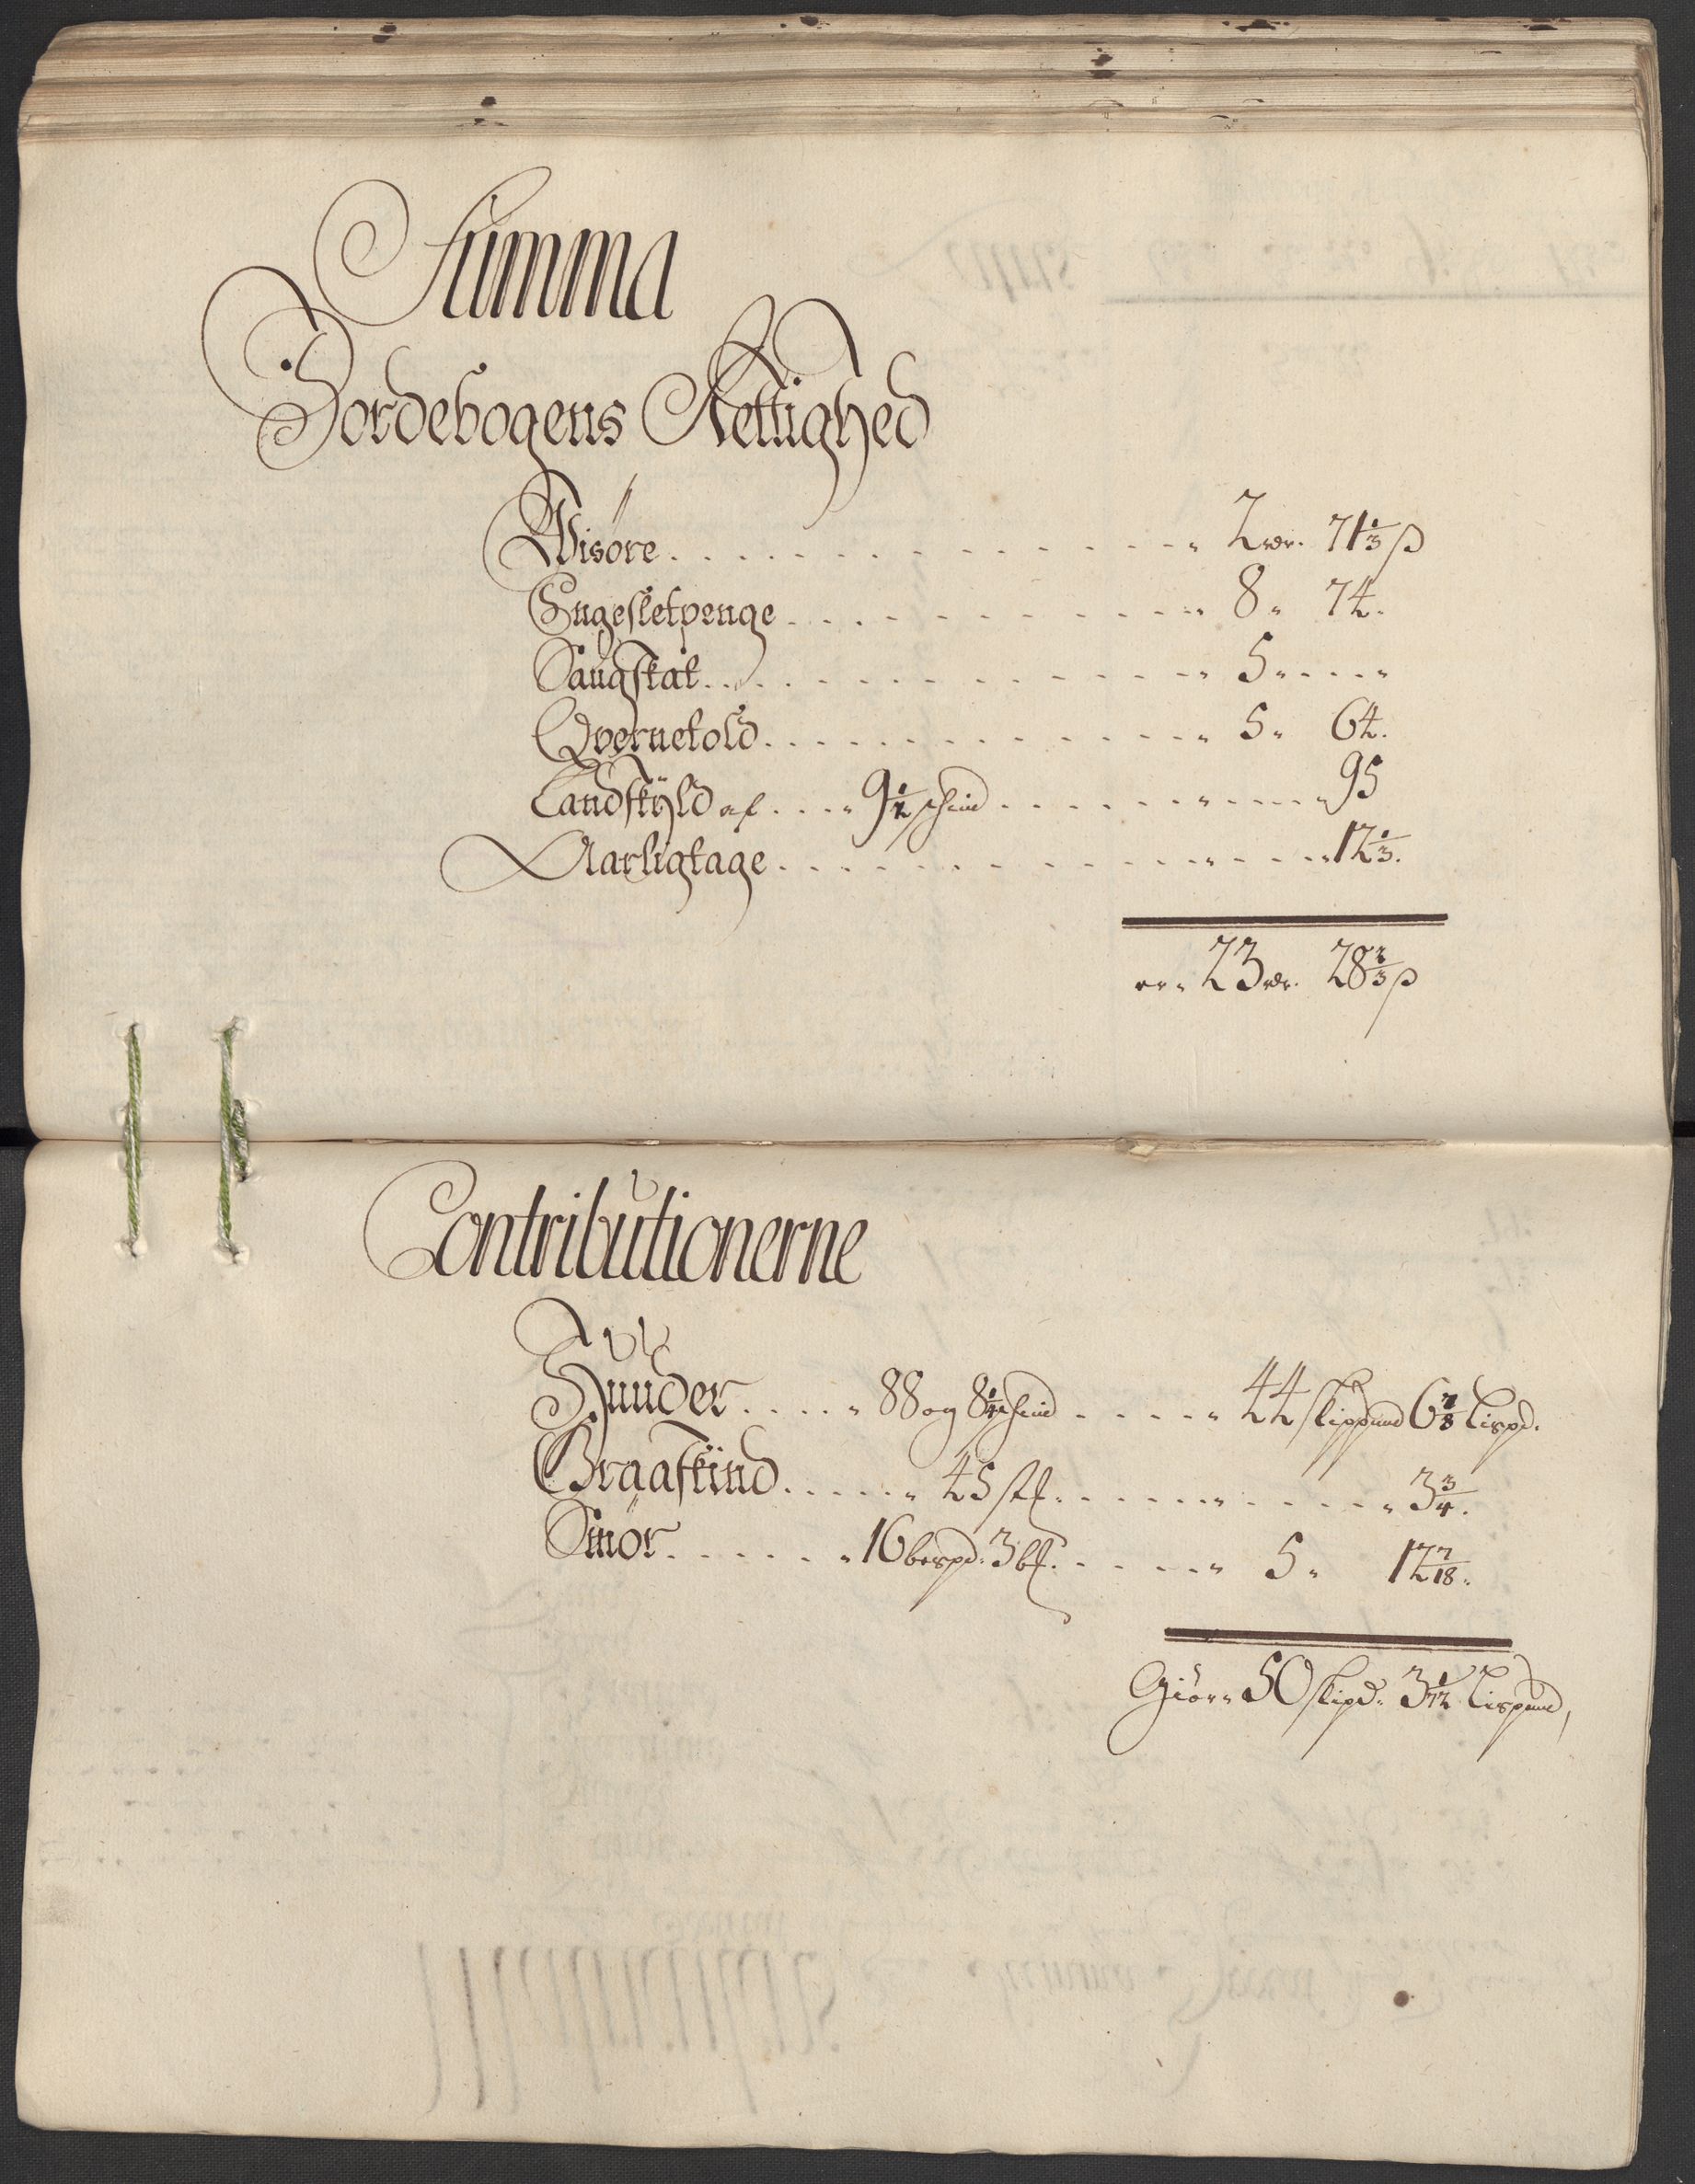 Summa
Jordebogens Rettighed
Wisöre . . . . . . . . 2 rdr. 71 1/3 ß
Engesletpenge . . . . . . . . 8 " 74.
Saugskat . . . . . . . . 5 " - - "
Qvernetold . . . . . . . . 5 " 64.
Landskÿld af . . . " 9 1/2 schind . . . . . . . . " 95
Aarligtage . . . . . . . . " 12 1/3.
er " 23 rdr. 28 2/3 ß
Contributionerne
Huuder . . . . " 88 og 8 1/4 schind . . . . " 44 skippund 6 7/8 Lispd.
Graaskind . . . . . " 45 stk. . . . . . . . . " 3 3/4.
Smör . . . . . . " 16 bespd. 3 bk. . . . . " 5 " 12 7/18.
Giör " 50 skipd. 3 1/72 Lispund,